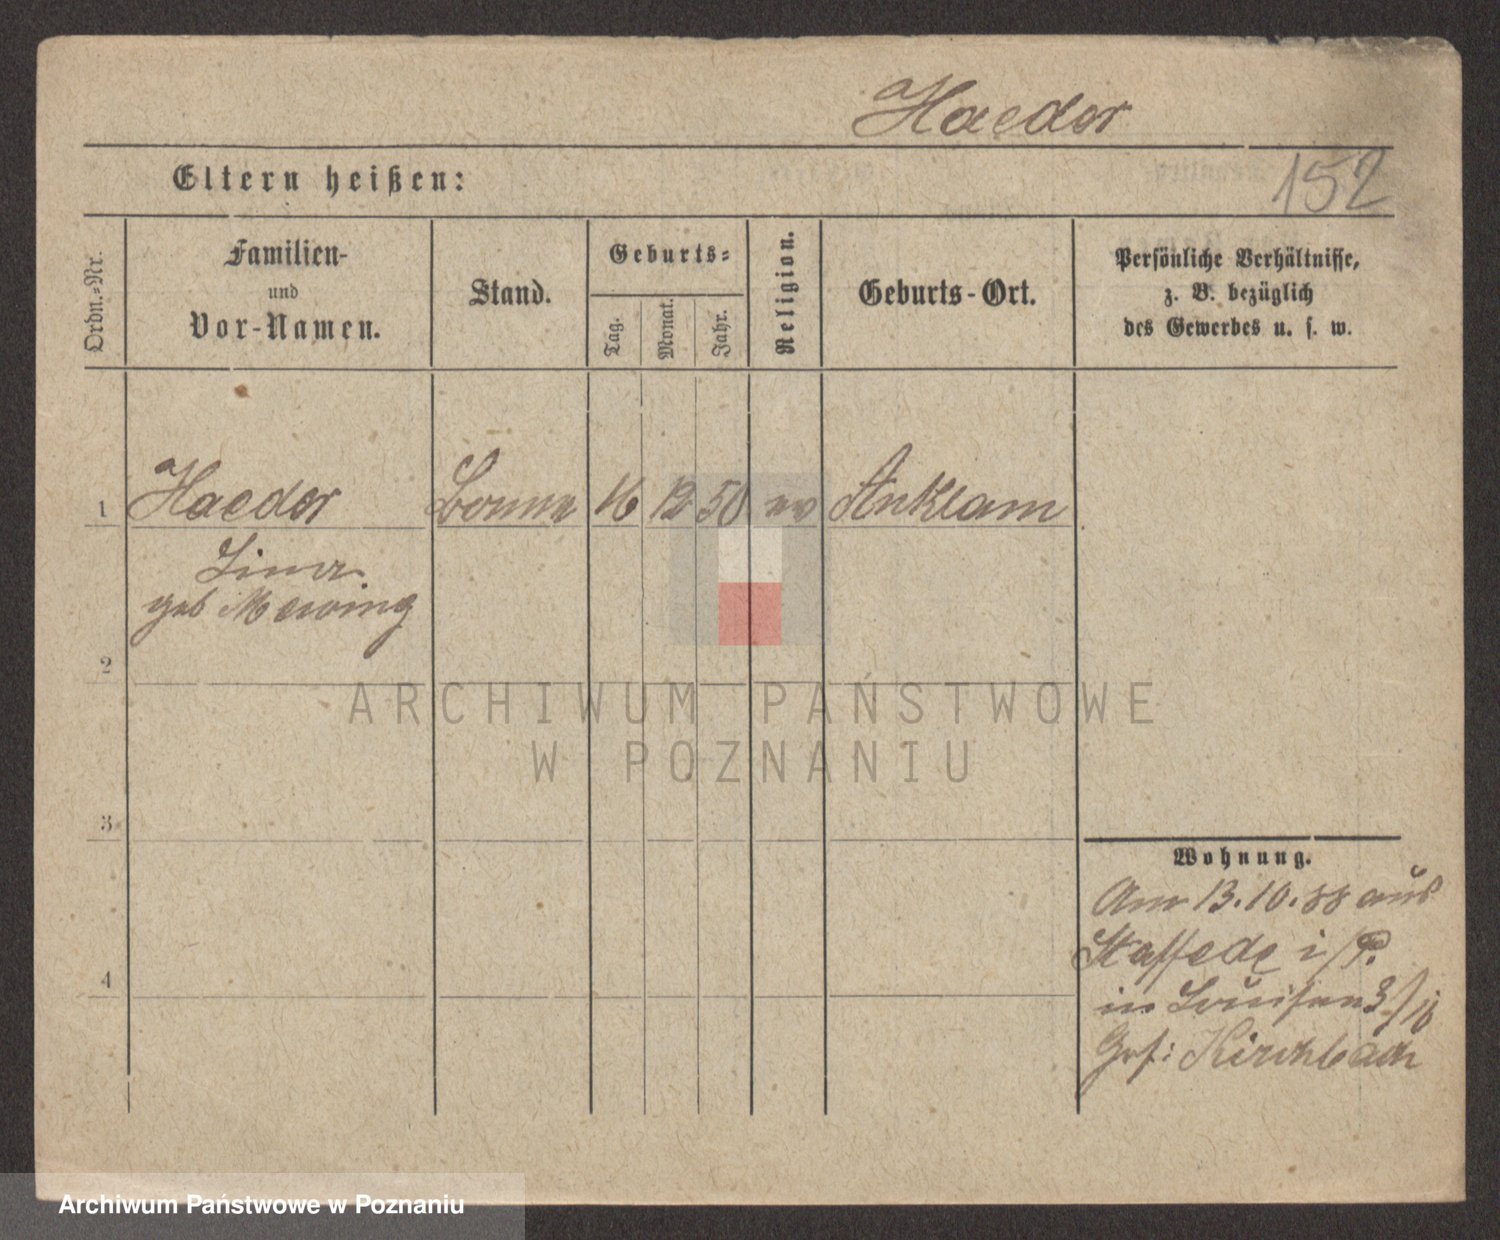 Haeder
152
Eltern heißen:
Ordn.-Nr.
Familien-
und
Vor-Namen.
Stand.
Geburts-
Tag.
Monat.
Jahr.
Religion.
Geburts-Ort.
Persönliche Verhältnisse,
z. B. bezüglich
des Gewerbes u. s. w.
1 Haeder Bonne 16 12 50 ev Anklam
Lina
geb
2
ARCHIWUM PAŃSTWOWE
W POZNANIU
3
4
Wohnung.
Am 13.10.88 aus
i/P.
in Louisen
Kirchbach
Archiwum Państwowe w Poznaniu